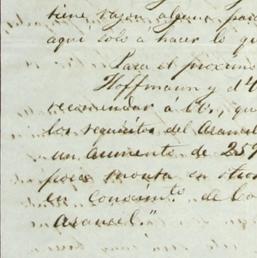 tiene razon alguna para
aqui solo á hacer lo qu
Para el proximo
Hoffmann y d'
recomendar á Ud., qu
los requisitos del Arancel
un aumento de 25%
pues monta en otros
en conocimto. de los
Arancel."